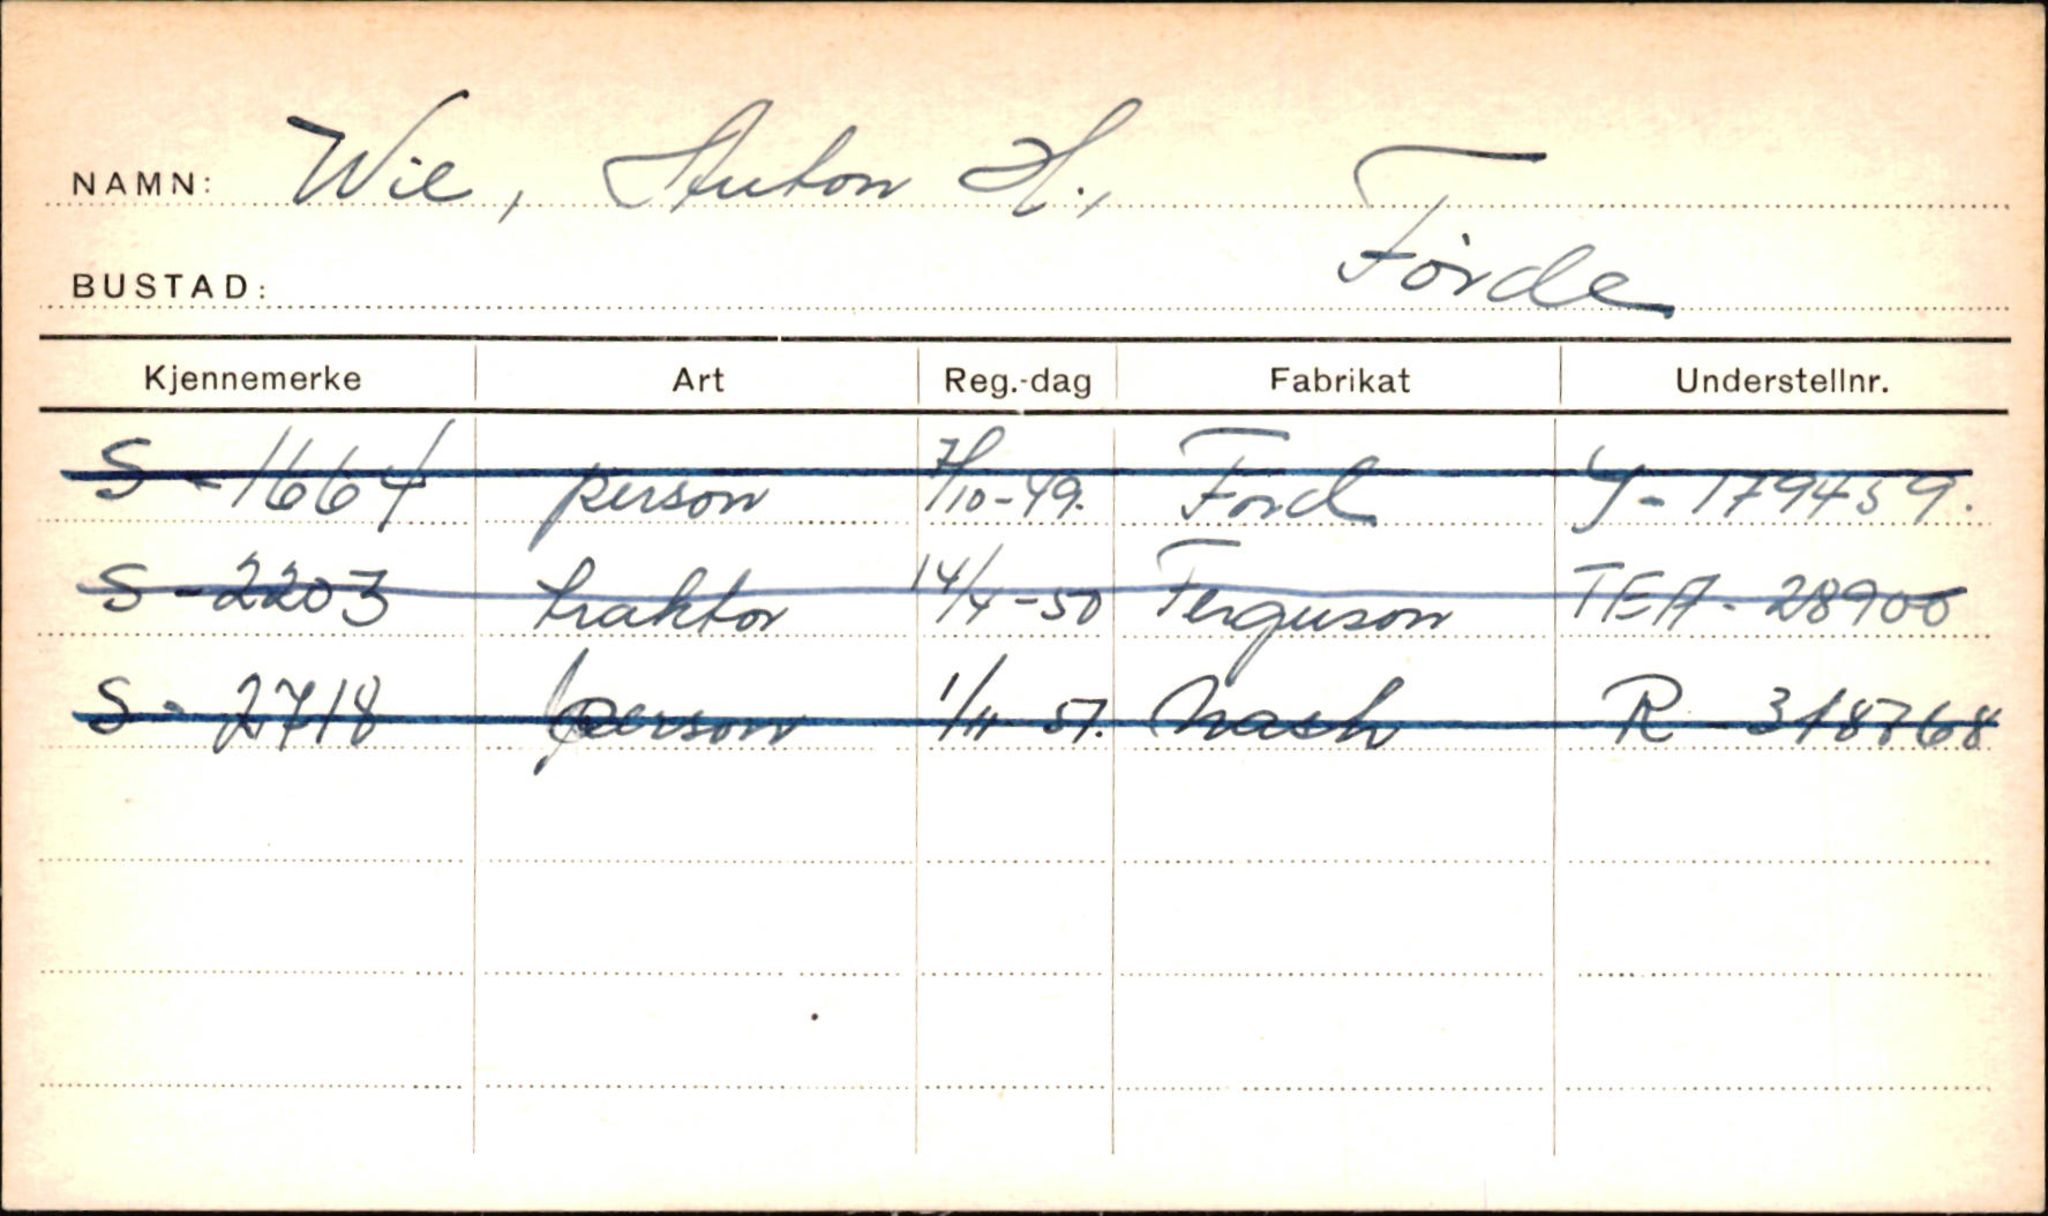 NAMN: Wie, Anton H.,
BUSTAD: Førde
Kjennemerke Art Reg.-dag Fabrikat Understellnr.
S-1664 person 7/10-49. Ford Y-179459.
S-2203 traktor 14/4-50 Ferguson TEA-28900
S-2718 person 1/11-51. Nash R-318768